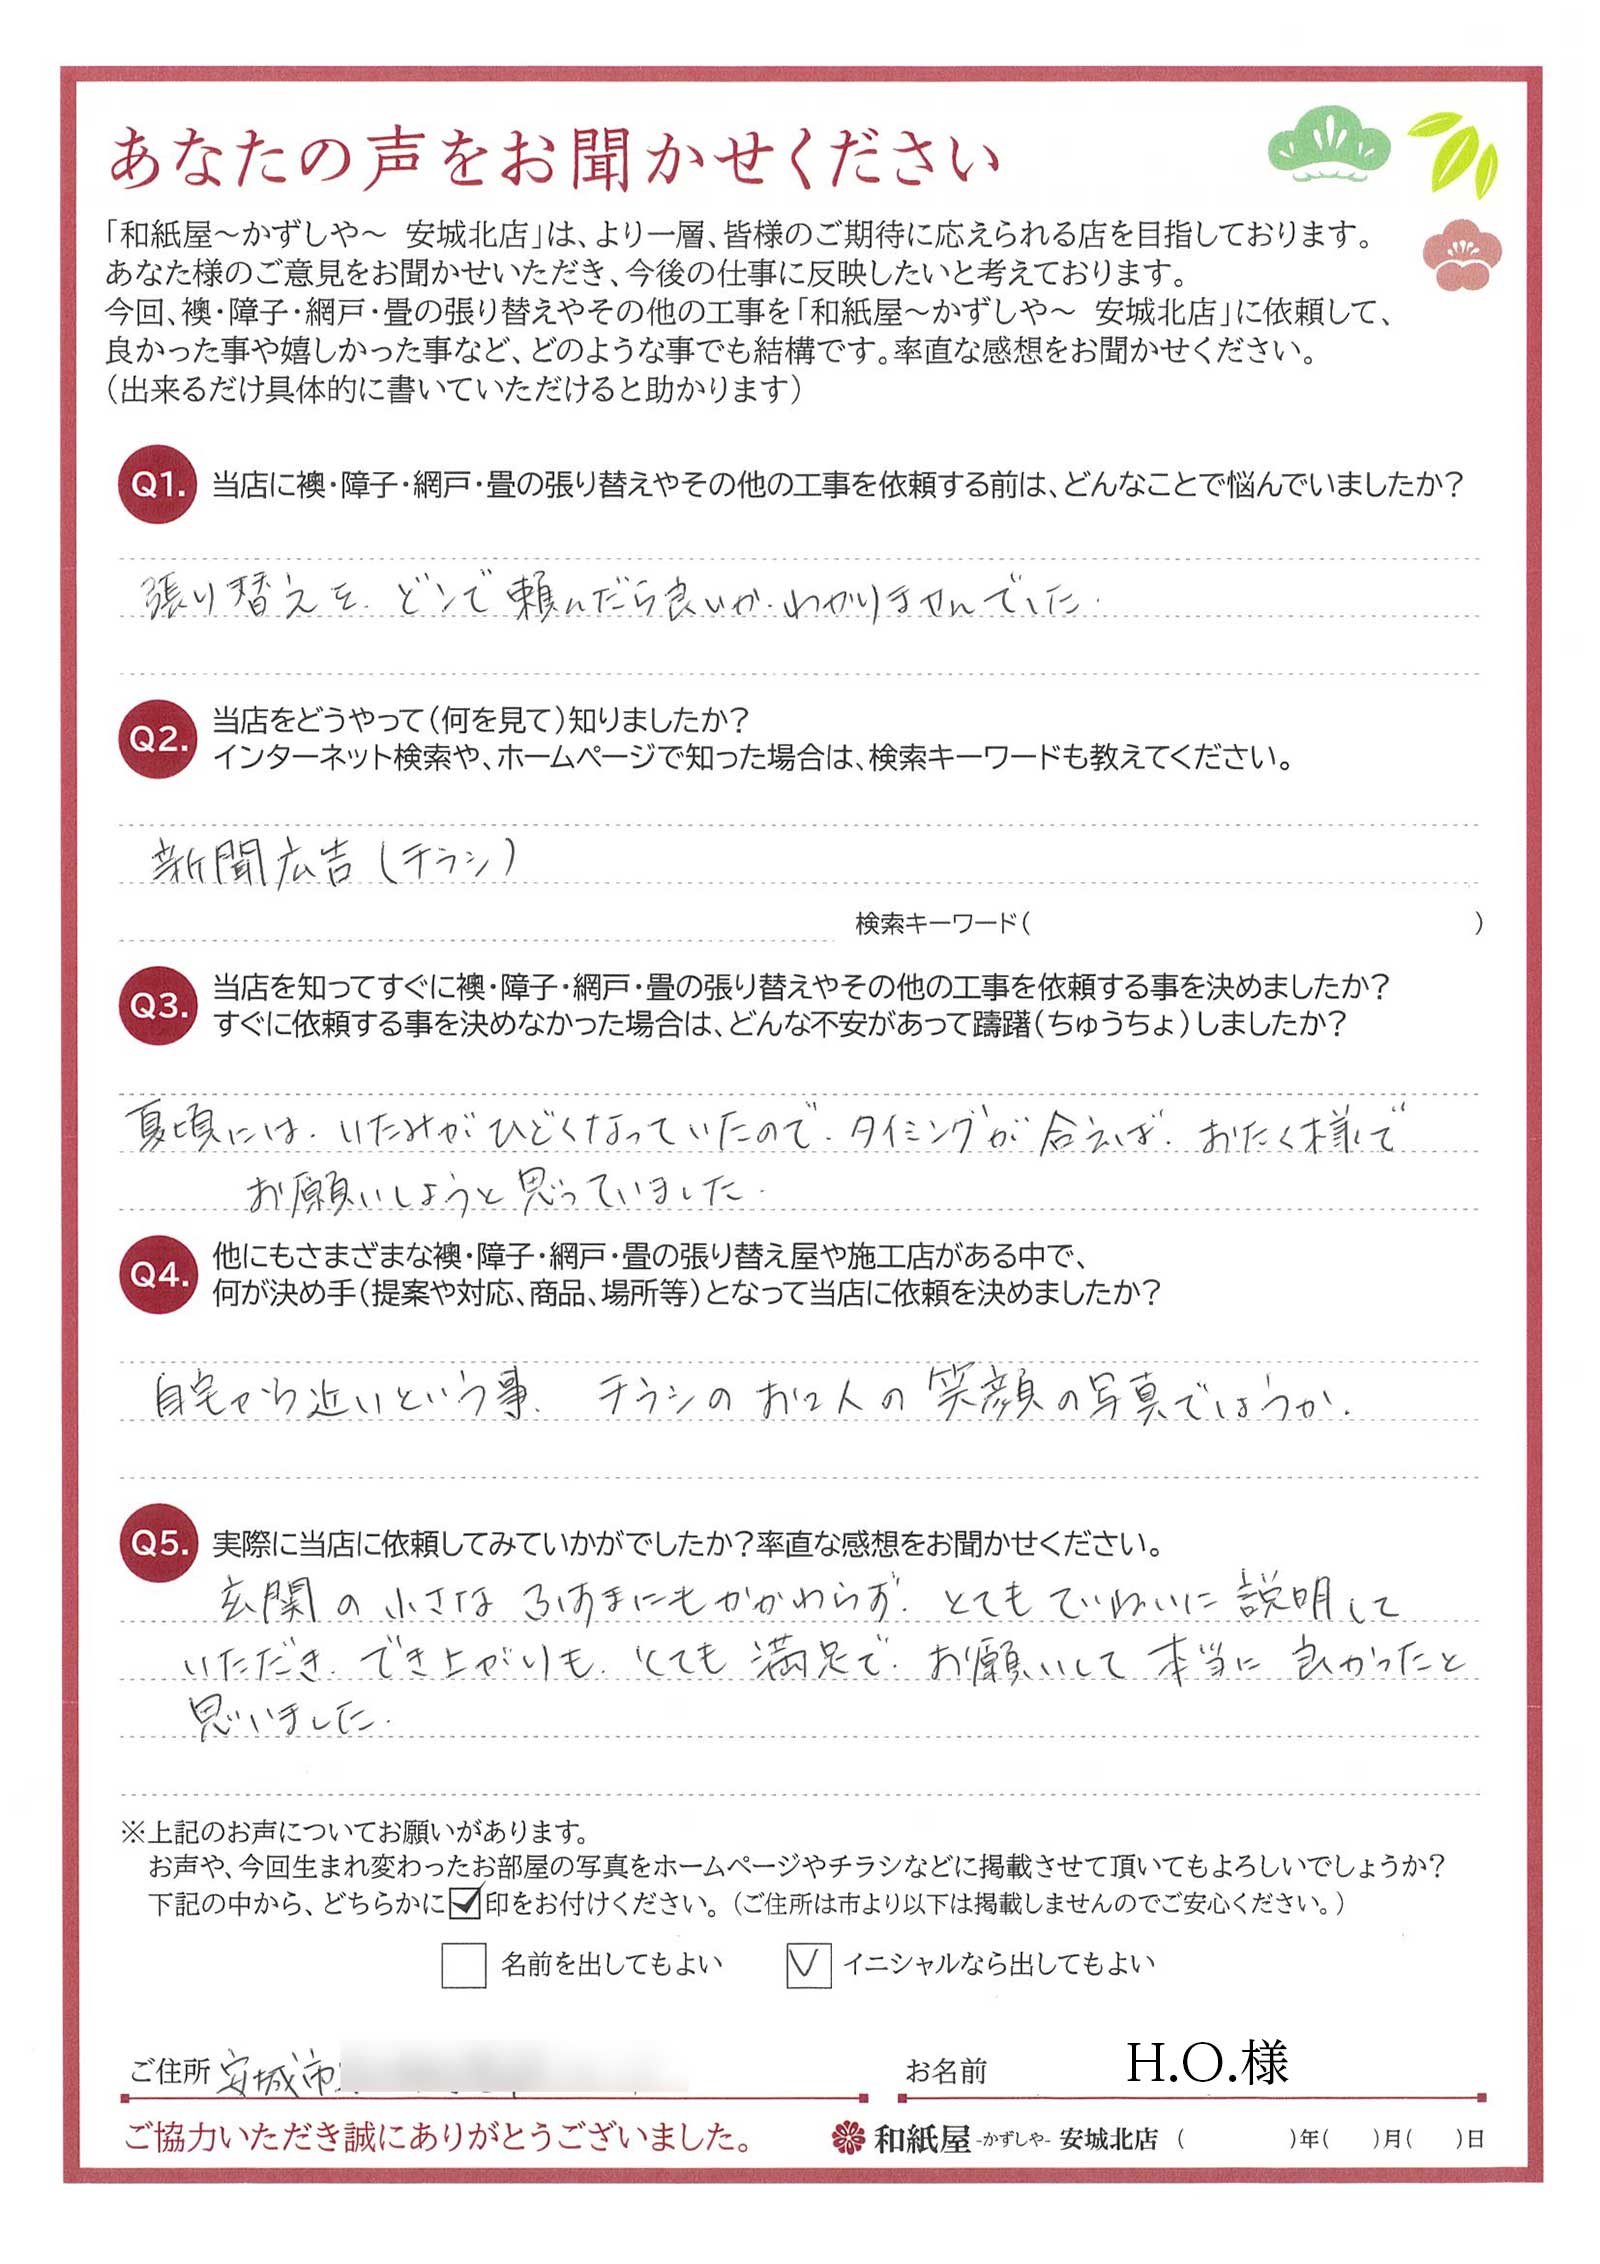 あなたの声をお聞かせください
「和紙屋～かずしや～ 安城北店」は、より一層、皆様のご期待に応えられる店を目指しております。
あなた様のご意見をお聞かせいただき、今後の仕事に反映したいと考えております。
今回、襖・障子・網戸・畳の張り替えやその他の工事を「和紙屋～かずしや～ 安城北店」に依頼して、
良かった事や嬉しかった事など、どのような事でも結構です。率直な感想をお聞かせください。
（出来るだけ具体的に書いていただけると助かります）
Q1. 当店に襖・障子・網戸・畳の張り替えやその他の工事を依頼する前は、どんなことで悩んでいましたか？
張り替えを、どこで頼んだら良いか、わかりませんでした.
Q2. 当店をどうやって（何を見て）知りましたか？
インターネット検索や、ホームページで知った場合は、検索キーワードも教えてください。
新聞広告（チラシ）
検索キーワード（ ）
Q3. 当店を知ってすぐに襖・障子・網戸・畳の張り替えやその他の工事を依頼する事を決めましたか？
すぐに依頼する事を決めなかった場合は、どんな不安があって躊躇（ちゅうちょ）しましたか？
夏頃には、いたみがひどくなっていたので、タイミングが合えば、おたく様で
お願いしようと思っていました.
Q4. 他にもさまざまな襖・障子・網戸・畳の張り替え屋や施工店がある中で、
何が決め手（提案や対応、商品、場所等）となって当店に依頼を決めましたか？
自宅から近いという事、チラシのお2人の笑顔の写真でしょうか.
Q5. 実際に当店に依頼してみていかがでしたか？率直な感想をお聞かせください。
玄関の小さなふすまにもかかわらず、とてもていねいに説明して
いただき、でき上がりも、とても満足で、お願いして本当に良かったと
思いました.
※上記のお声についてお願いがあります。
お声や、今回生まれ変わったお部屋の写真をホームページやチラシなどに掲載させて頂いてもよろしいでしょうか？
下記の中から、どちらかに☑印をお付けください。（ご住所は市より以下は掲載しませんのでご安心ください。）
□ 名前を出してもよい ☑ イニシャルなら出してもよい
ご住所 安城市 お名前 H.O.様
ご協力いただき誠にありがとうございました。 和紙屋 -かずしや- 安城北店 （ ）年（ ）月（ ）日